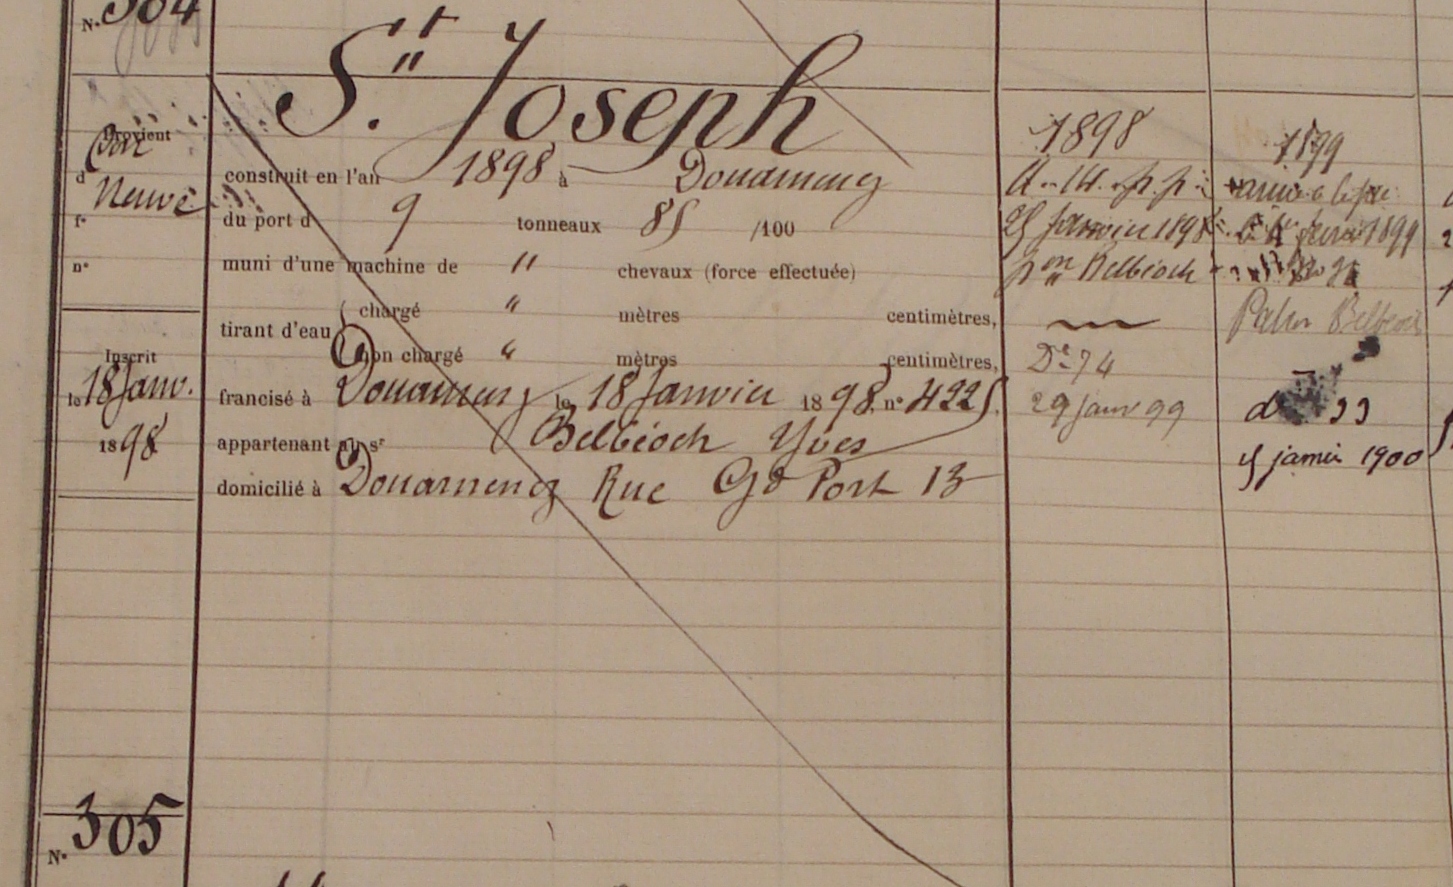 N° 304
St Joseph
Provient
d Neuve
fo
no
Inscrit
le 18 Janv.
1898
construit en l'an 1898 à Douarnenez
du port d 9 tonneaux 85 /100
muni d'une machine de " chevaux (force effectuée)
tirant d'eau
chargé " mètres centimètres,
non chargé " mètres centimètres,
francisé à Douarnenez le 18 Janvier 1898. no 4225.
appartenant au sr Belbéoch Yves
domicilié à Douarnenez Rue Gd Port 13
1898
25 Janvier 1898
pon Belbéoch
De 74
29 janv 99
1899
février 1899
Patron Belbéoch
5 janvier 1900
N° 305